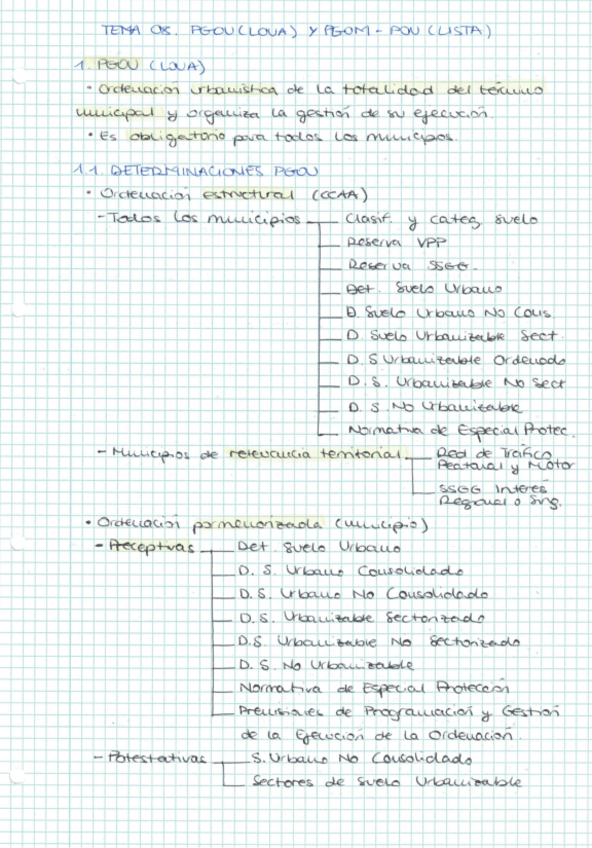 TEMA 08. PGOU (LOUA) Y PGOM - POU (LISTA)
1. PGOU (LOUA)
• Ordenación urbanística de la totalidad del término
municipal y organiza la gestión de su ejecución.
• Es obligatorio para todos los municipos.
1.1. DETERMINACIONES PGOU
• Ordenación estructural (CCAA)
- Todos los municipios
Clasif. y categ suelo
Reserva VPP
Reserva SSGG.
Det. Suelo Urbano
D. Suelo Urbano No Cons
D. Suelo Urbanizable Sect.
D. S Urbanizable Ordenado
D. S. Urbanizable No Sect
D. S. No Urbanizable
Normativa de Especial Protec.
- Municipios de relevancia territorial
Red de Tráfico
Peatonal y Motor
SSGG Interés
Regional o Sing.
• Ordenación pormenorizada (municipio)
- Preceptivas
Det. Suelo Urbano
D. S. Urbano Consolidado
D. S. Urbano No Consolidado
D. S. Urbanizable Sectorizado
D.S. Urbanizable No Sectorizado
D. S. No Urbanizable
Normativa de Especial Protección
Previsiones de Programación y Gestión
de la Ejecución de la Ordenación.
- Potestativas
S. Urbano No Consolidado
Sectores de Suelo Urbanizable